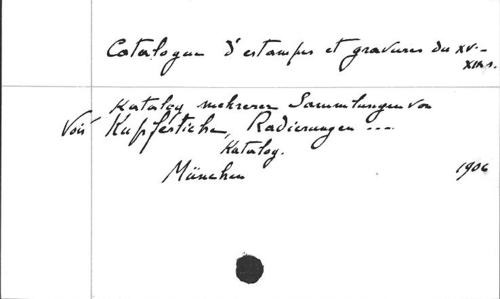 Catalogue d'estampes et gravures du XV-
XIXs.
Katalog mehrerer Sammlungen von
Voir Kupferstichen, Radierungen ...
Katalog.
München 1906